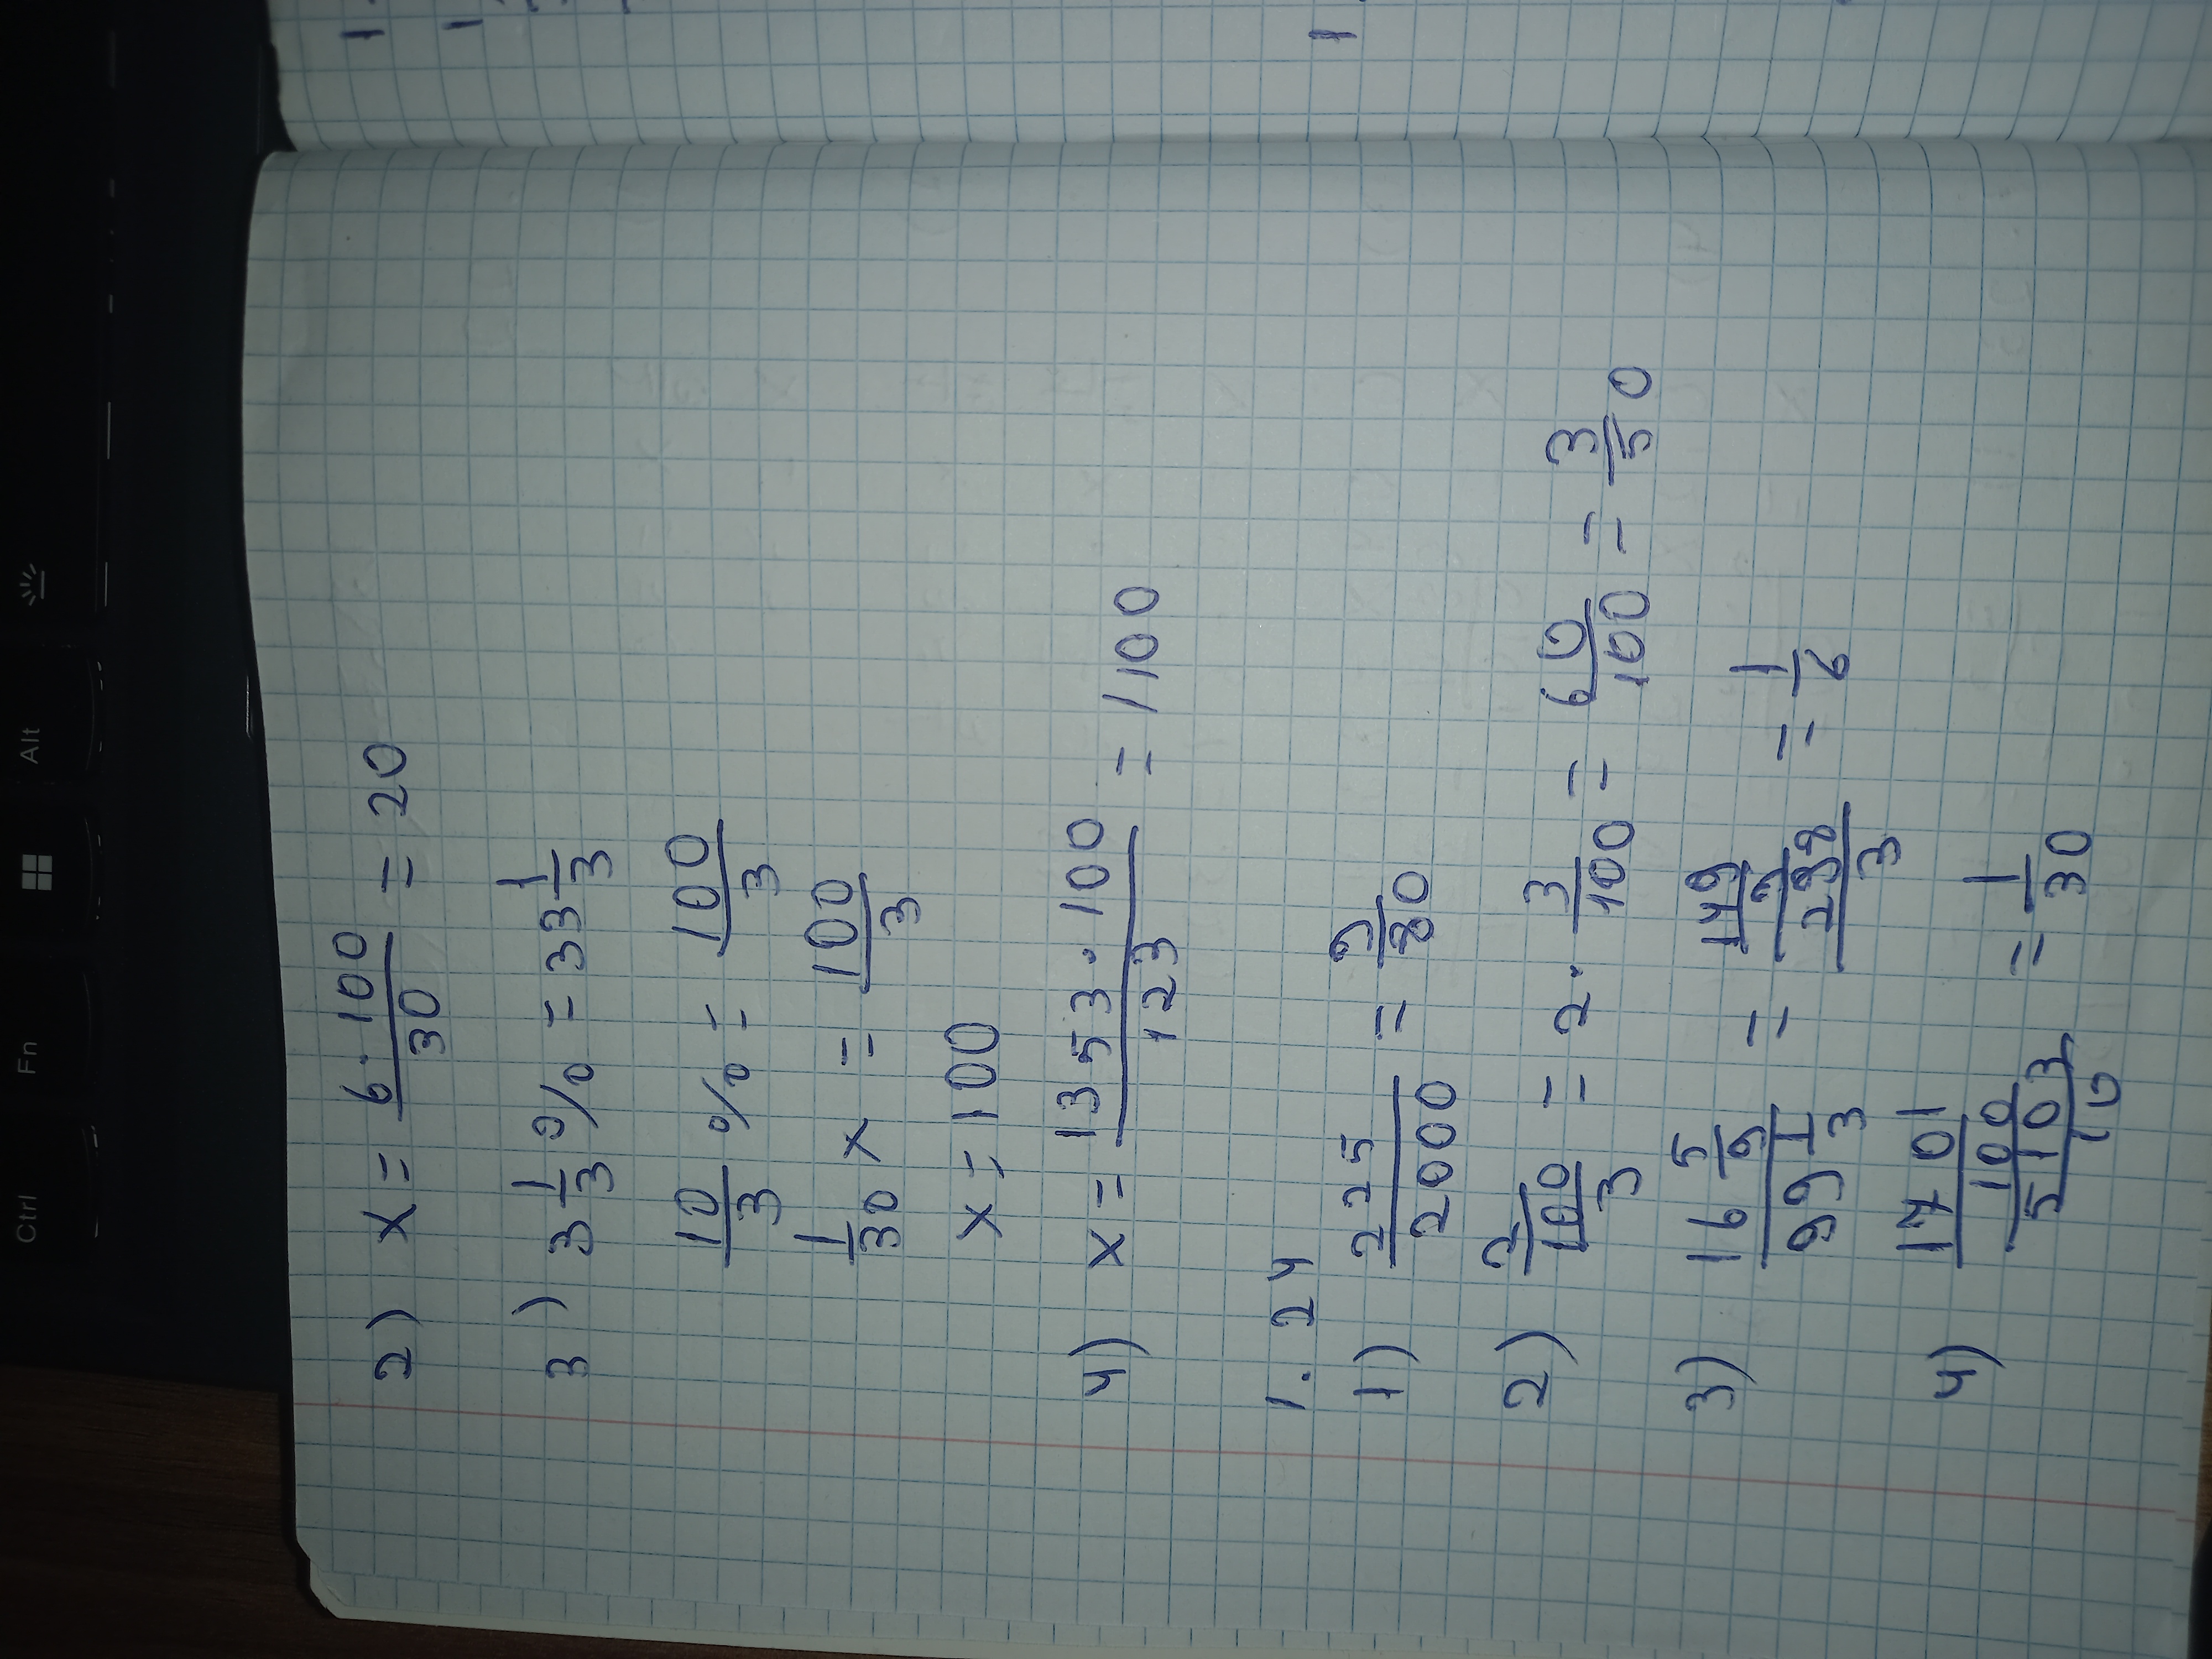 Ctrl Fn Alt
2) x = \frac{6 \cdot 100}{30} = 20
3) 3\frac{1}{3} % = 33\frac{1}{3}
\frac{10}{3} % = \frac{100}{3}
\frac{1}{30} x = \frac{100}{3}
x = 100
4) x = \frac{1353 \cdot 100}{123} = 1100
1.24
1) \frac{225}{2000} = \frac{9}{80}
2) \frac{2}{\frac{100}{3}} = 2 \cdot \frac{3}{100} = \frac{60}{100} = \frac{3}{50}
3) \frac{16\frac{5}{9}}{99\frac{1}{3}} = \frac{\frac{149}{9}}{\frac{298}{3}} = \frac{1}{6}
4) \frac{\frac{1701}{100}}{\frac{5103}{10}} = \frac{1}{30}